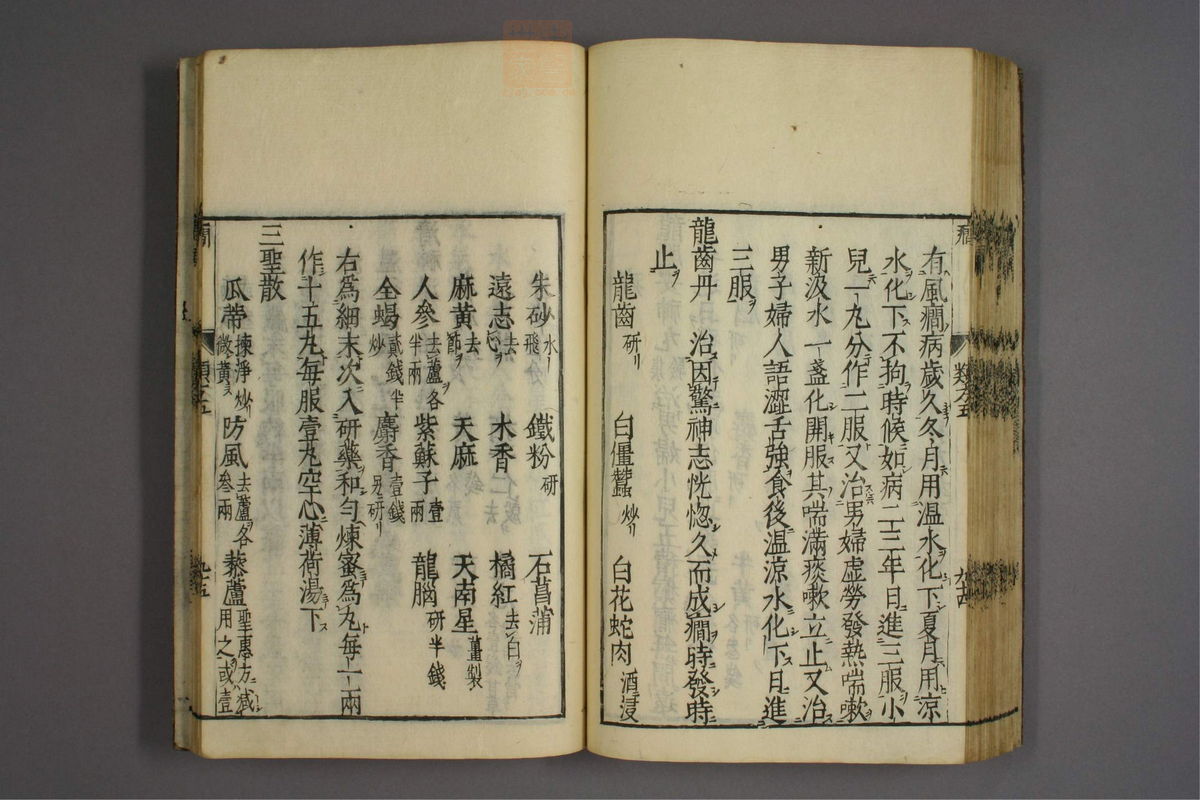 有風癇病歲久冬月用温水化下夏月用涼
水化下不拘時候如病二三年日進三服小
兒一丸分作二服又治男婦虚勞發熱喘嗽
新汲水一盞化開服其喘滿痰嗽立止又治
男子婦人語澀舌強食後温涼水化下日進
三服
龍齒丹 治因驚神志恍惚久而成癇時發時
止
龍齒研 白僵蠶炒 白花蛇肉酒浸
朱砂水飛 鐵粉研 石菖蒲
遠志去心 木香 橘紅去白
麻黄去節 天麻 天南星薑製
人參去蘆各半兩 紫蘇子壹兩 龍腦研半錢
全蝎貳錢半炒 麝香壹錢另研
右為細末次入研藥和勻煉蜜為丸每一兩
作十五丸每服壹丸空心薄荷湯下
三聖散
瓜蔕揀淨炒微黄 防風去蘆各參兩 藜蘆聖惠方減用之或壹